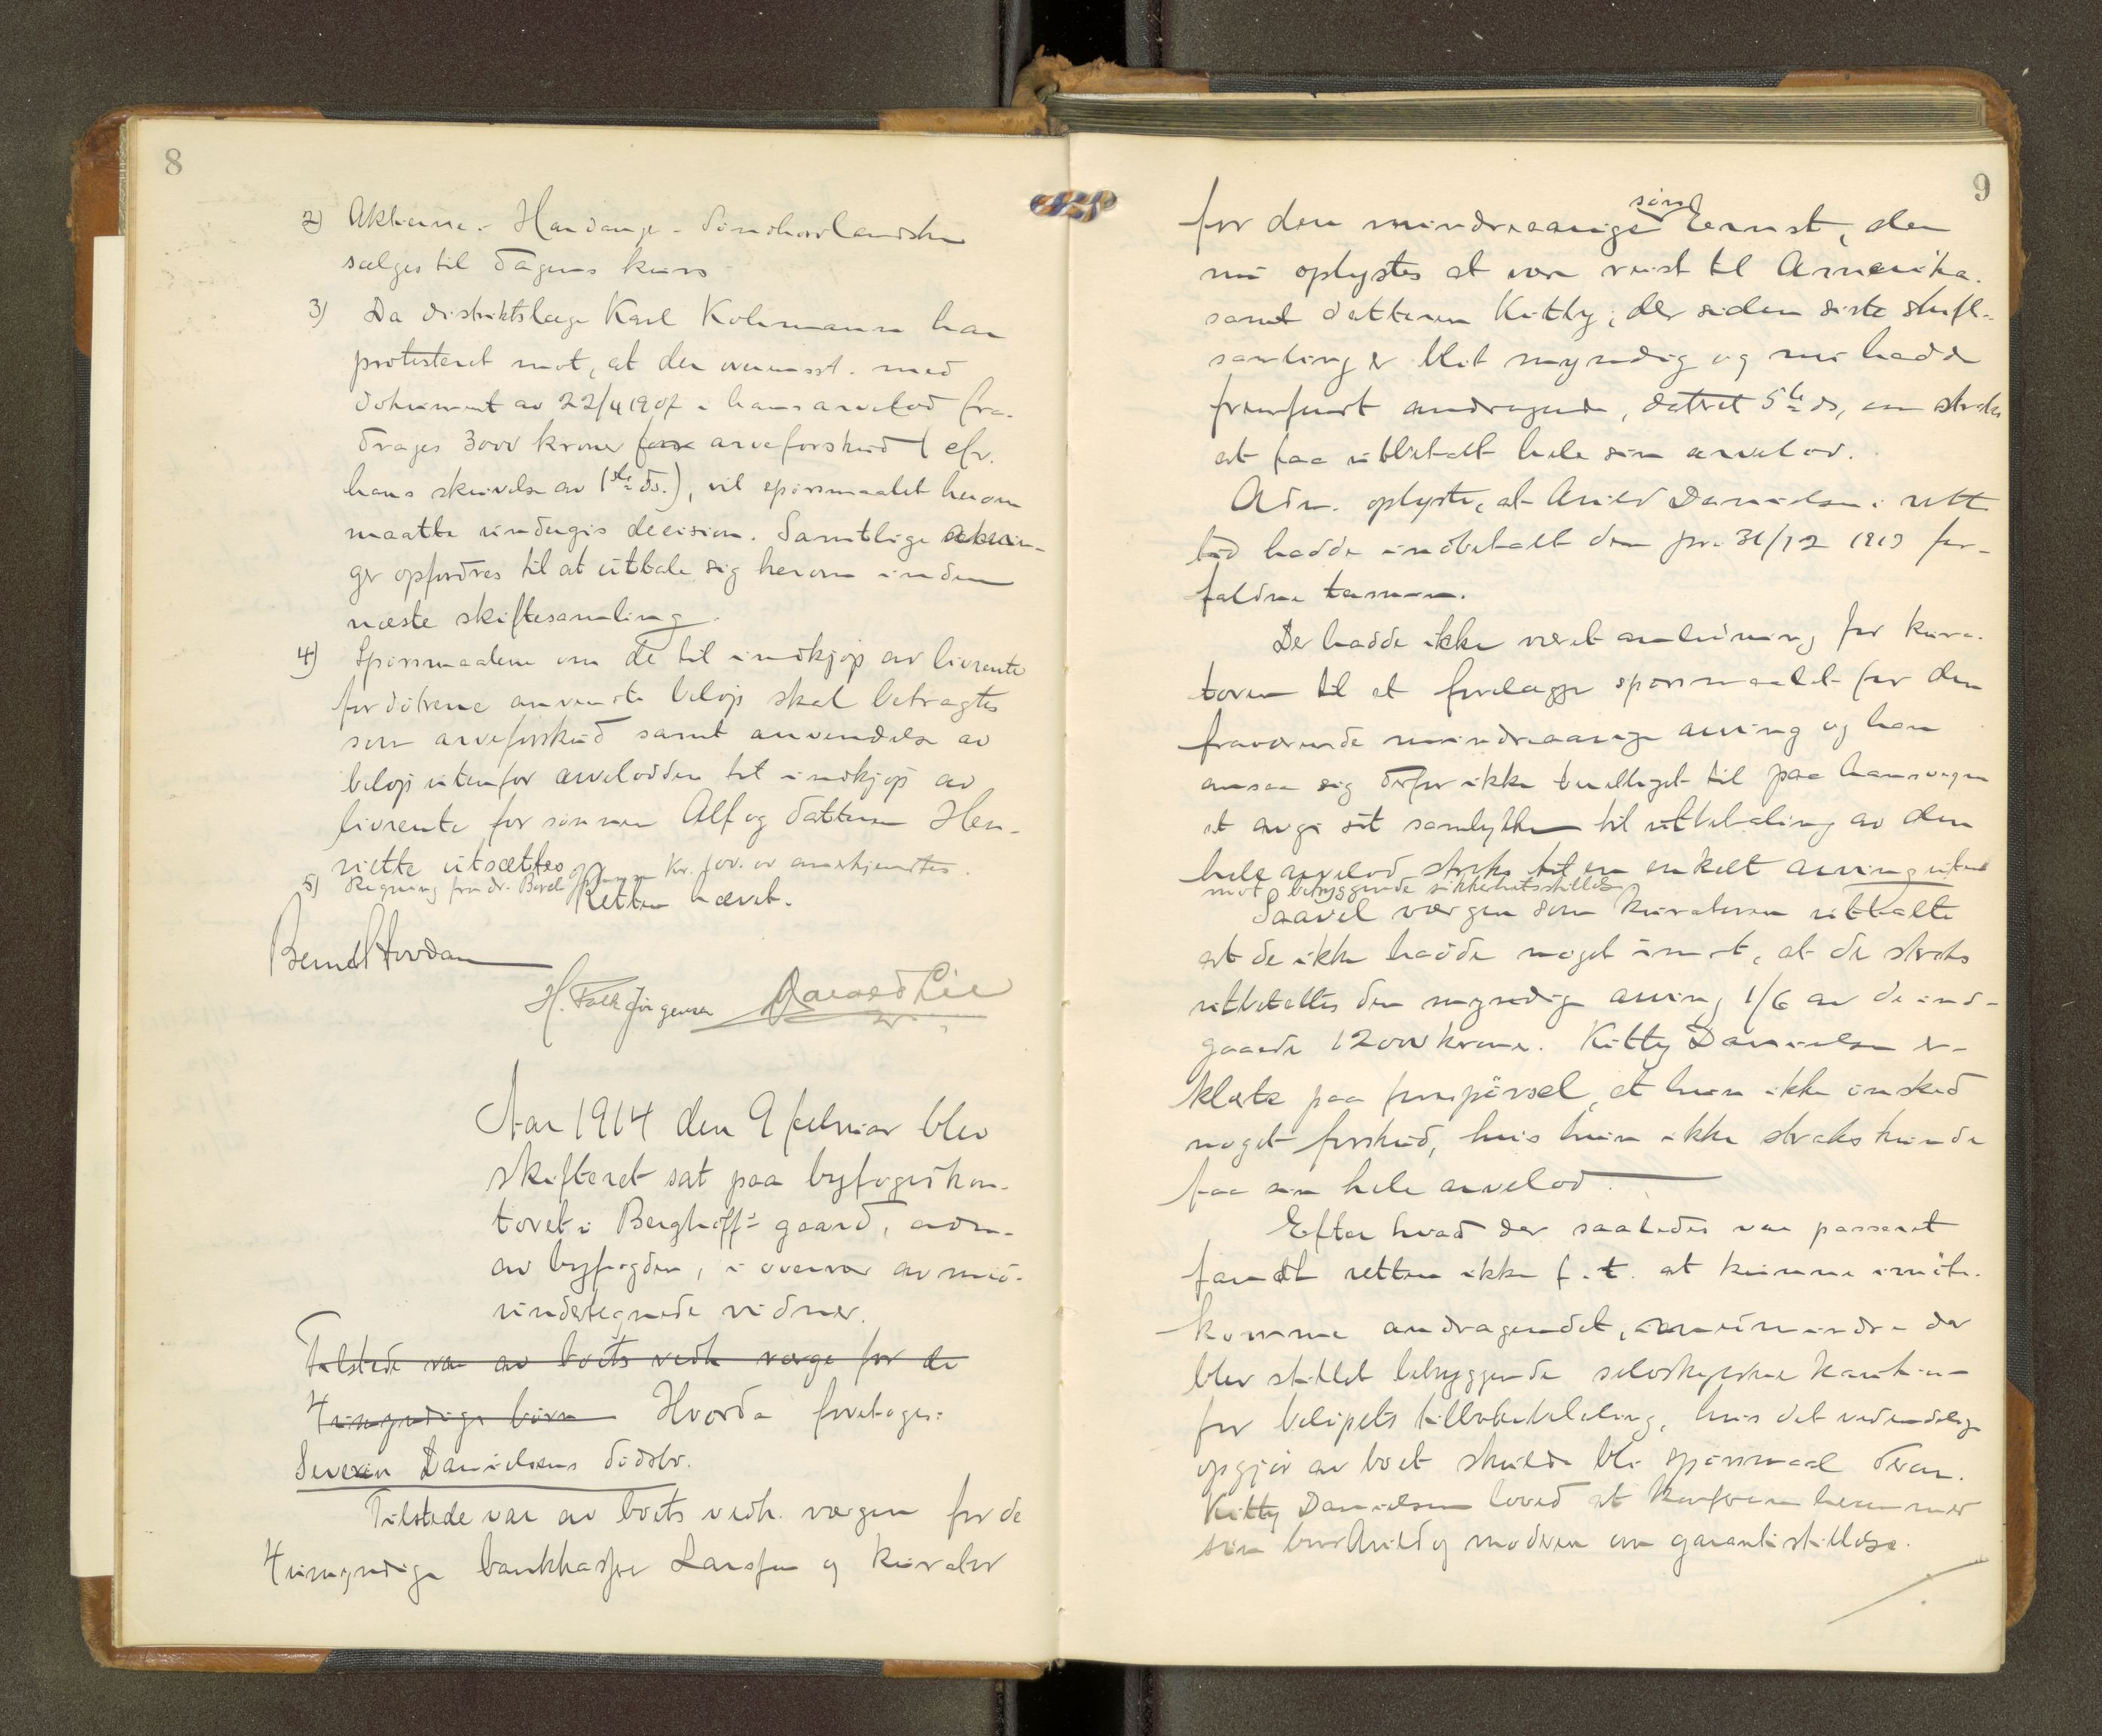 8
2) Aktierne i Hardange-Søndhorlandske
sælges til dagens kurs
3) Da distriktslæge Karl Kohmann har
protesteret mot, at der overensst. med
dokument av 22/4 1907 i hans arvelod fra-
drages 3000 kroner som arveforskud (cfr.
hans skrivelse av 1ste ds.), vil spørsmaalet herom
maatte undergis decision. Samtlige arvin-
ger opfordres til at uttale sig herom inden
næste skiftesamling.
4) Spørsmaalene om de til indkjøp av livrente
for døtrene anvendte beløp skal betragtes
som arveforskud samt anvendelse av
beløp utenfor arvelodden til indkjøp av
livrente for sønnen Alf og datteren Hen-
riette utsættes
5) Regning fra dr. Kr. anerkjendtes.
Retten hævet.
Bernd Hovdan
H. Falk Jørgensen Lie
Aar 1914 den 9 februar blev
skifteret sat paa byfogedkon-
toret i Berghoffs gaard, adm.
av byfogden, i overvær av med-
undertegnede vidner.
Tilstede var av boets vedk. værge for de
4 umyndige børn Hvorda foretoges:
Severin Danielsens dødsbo.
Tilstede var av boets vedk. værgen for de
4 umyndige bankkasser Larssen og kurator
9
for den mindreaarige søn Ernst, der
nu oplystes at være reist til Amerika.
samt datteren Kitty, der siden siste skifte-
samling er blit myndig og nu hadde
fremført andragende, dateret 5te ds, om straks
at faa utbetalt hele sin arvelod.
Adv. oplyste, at Arild Danielsen i rett
tid hadde indbetalt den pr. 31/12 1913 for-
faldne termin.
Der hadde ikke været anledning for kura-
toren til at forelægge spørsmaalet for den
fraværende mindreaarige arving og han
ansaa sig derfor ikke berettiget til paa hans vegne
at avgi sit samtykke til utbetaling av den
hele arvelod straks til en enkelt arving uten
mot betryggende sikkerhetsstillelse
Saavel værgen som kuratoren uttalte
at de ikke hadde noget imot, at der straks
utbetaltes den myndige arving 1/6 av de ind-
gaaede 12000 kroner. Kitty Danielsen er-
klærte paa forespørsel, at hun ikke ønsked
noget forskud, hvis hun ikke straks kunde
faa sin hele arvelod.
Efter hvad der saaledes var passeret
fandt retten ikke f. t. at kunne imøte-
komme andragendet, medmindre der
blev stillet betryggende selvskyldner kaution
for beløpets tilbakebetaling, hvis det ved endelig
opgjør av boet skulde bli spørsmaal derom.
Kitty Danielsen loved at konferere herom med
sin bror Arild og moderen om garantistillelse.